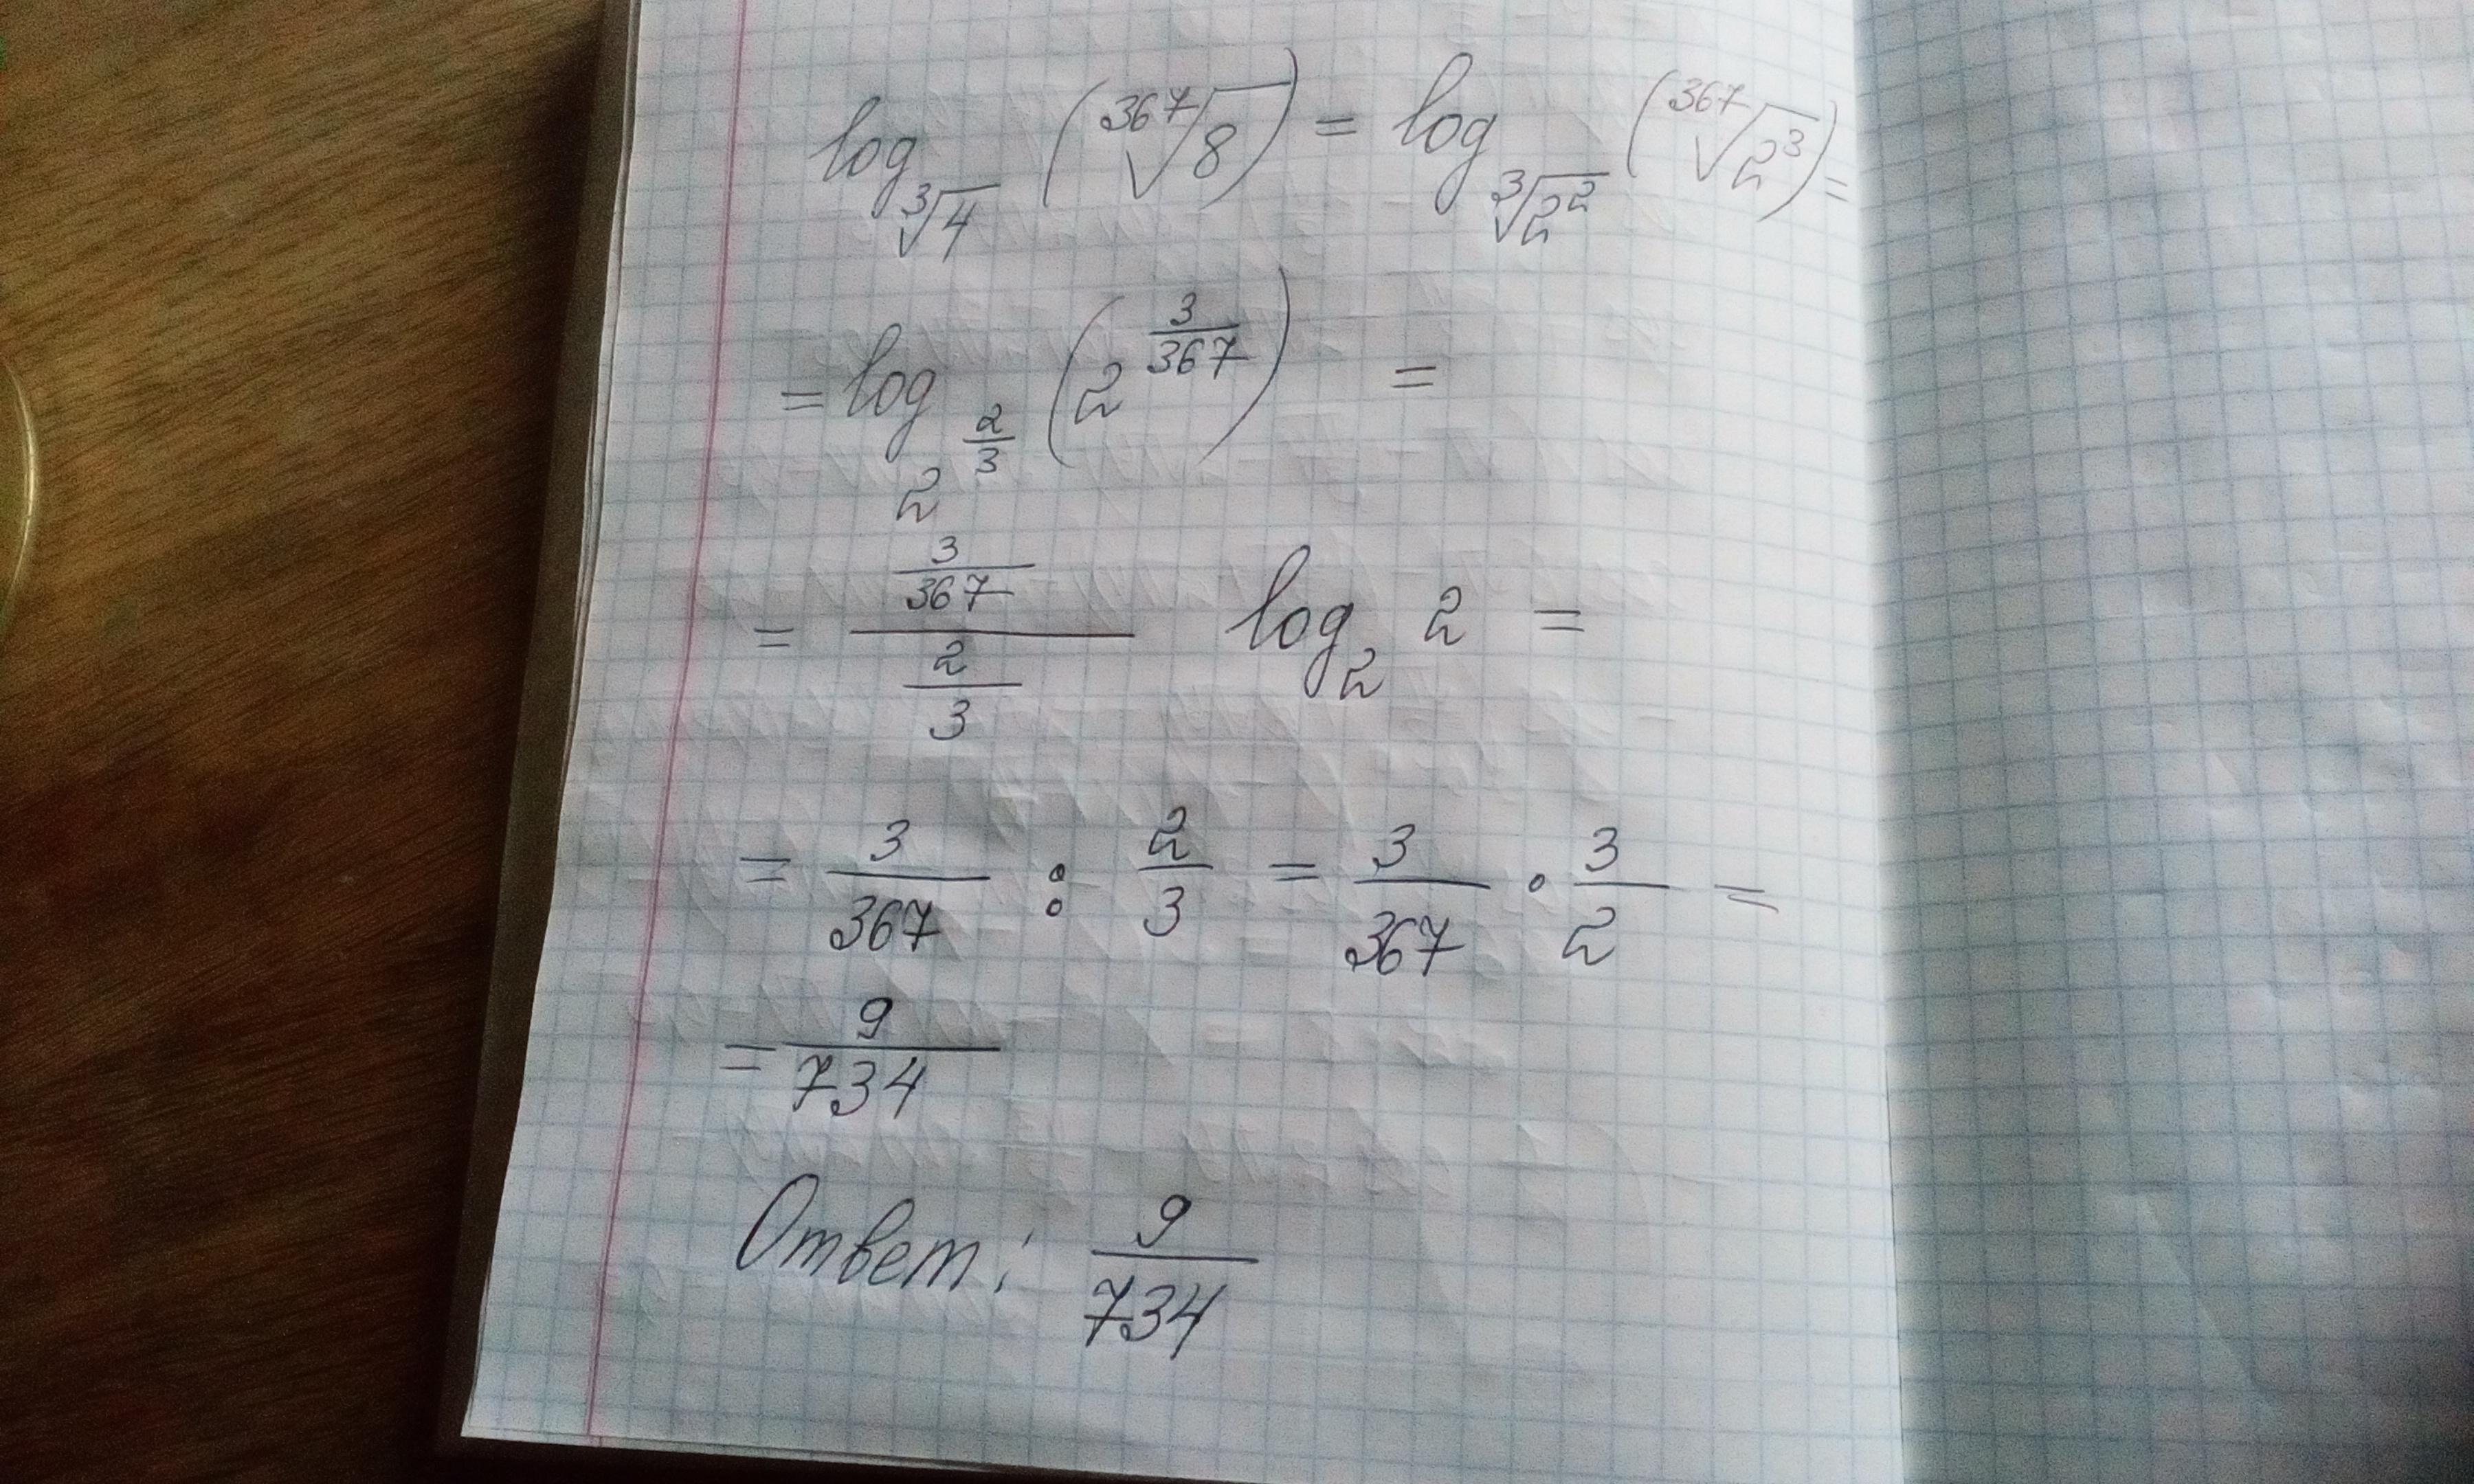 log_{∛4} (³⁶⁷√8) = log_{∛2²} (³⁶⁷√2³) =
= log_{2^{2/3}} (2^{3/367}) =
= \frac{\frac{3}{367}}{\frac{2}{3}} log_2 2 =
= \frac{3}{367} : \frac{2}{3} = \frac{3}{367} · \frac{3}{2} =
= \frac{9}{734}
Ответ: \frac{9}{734}